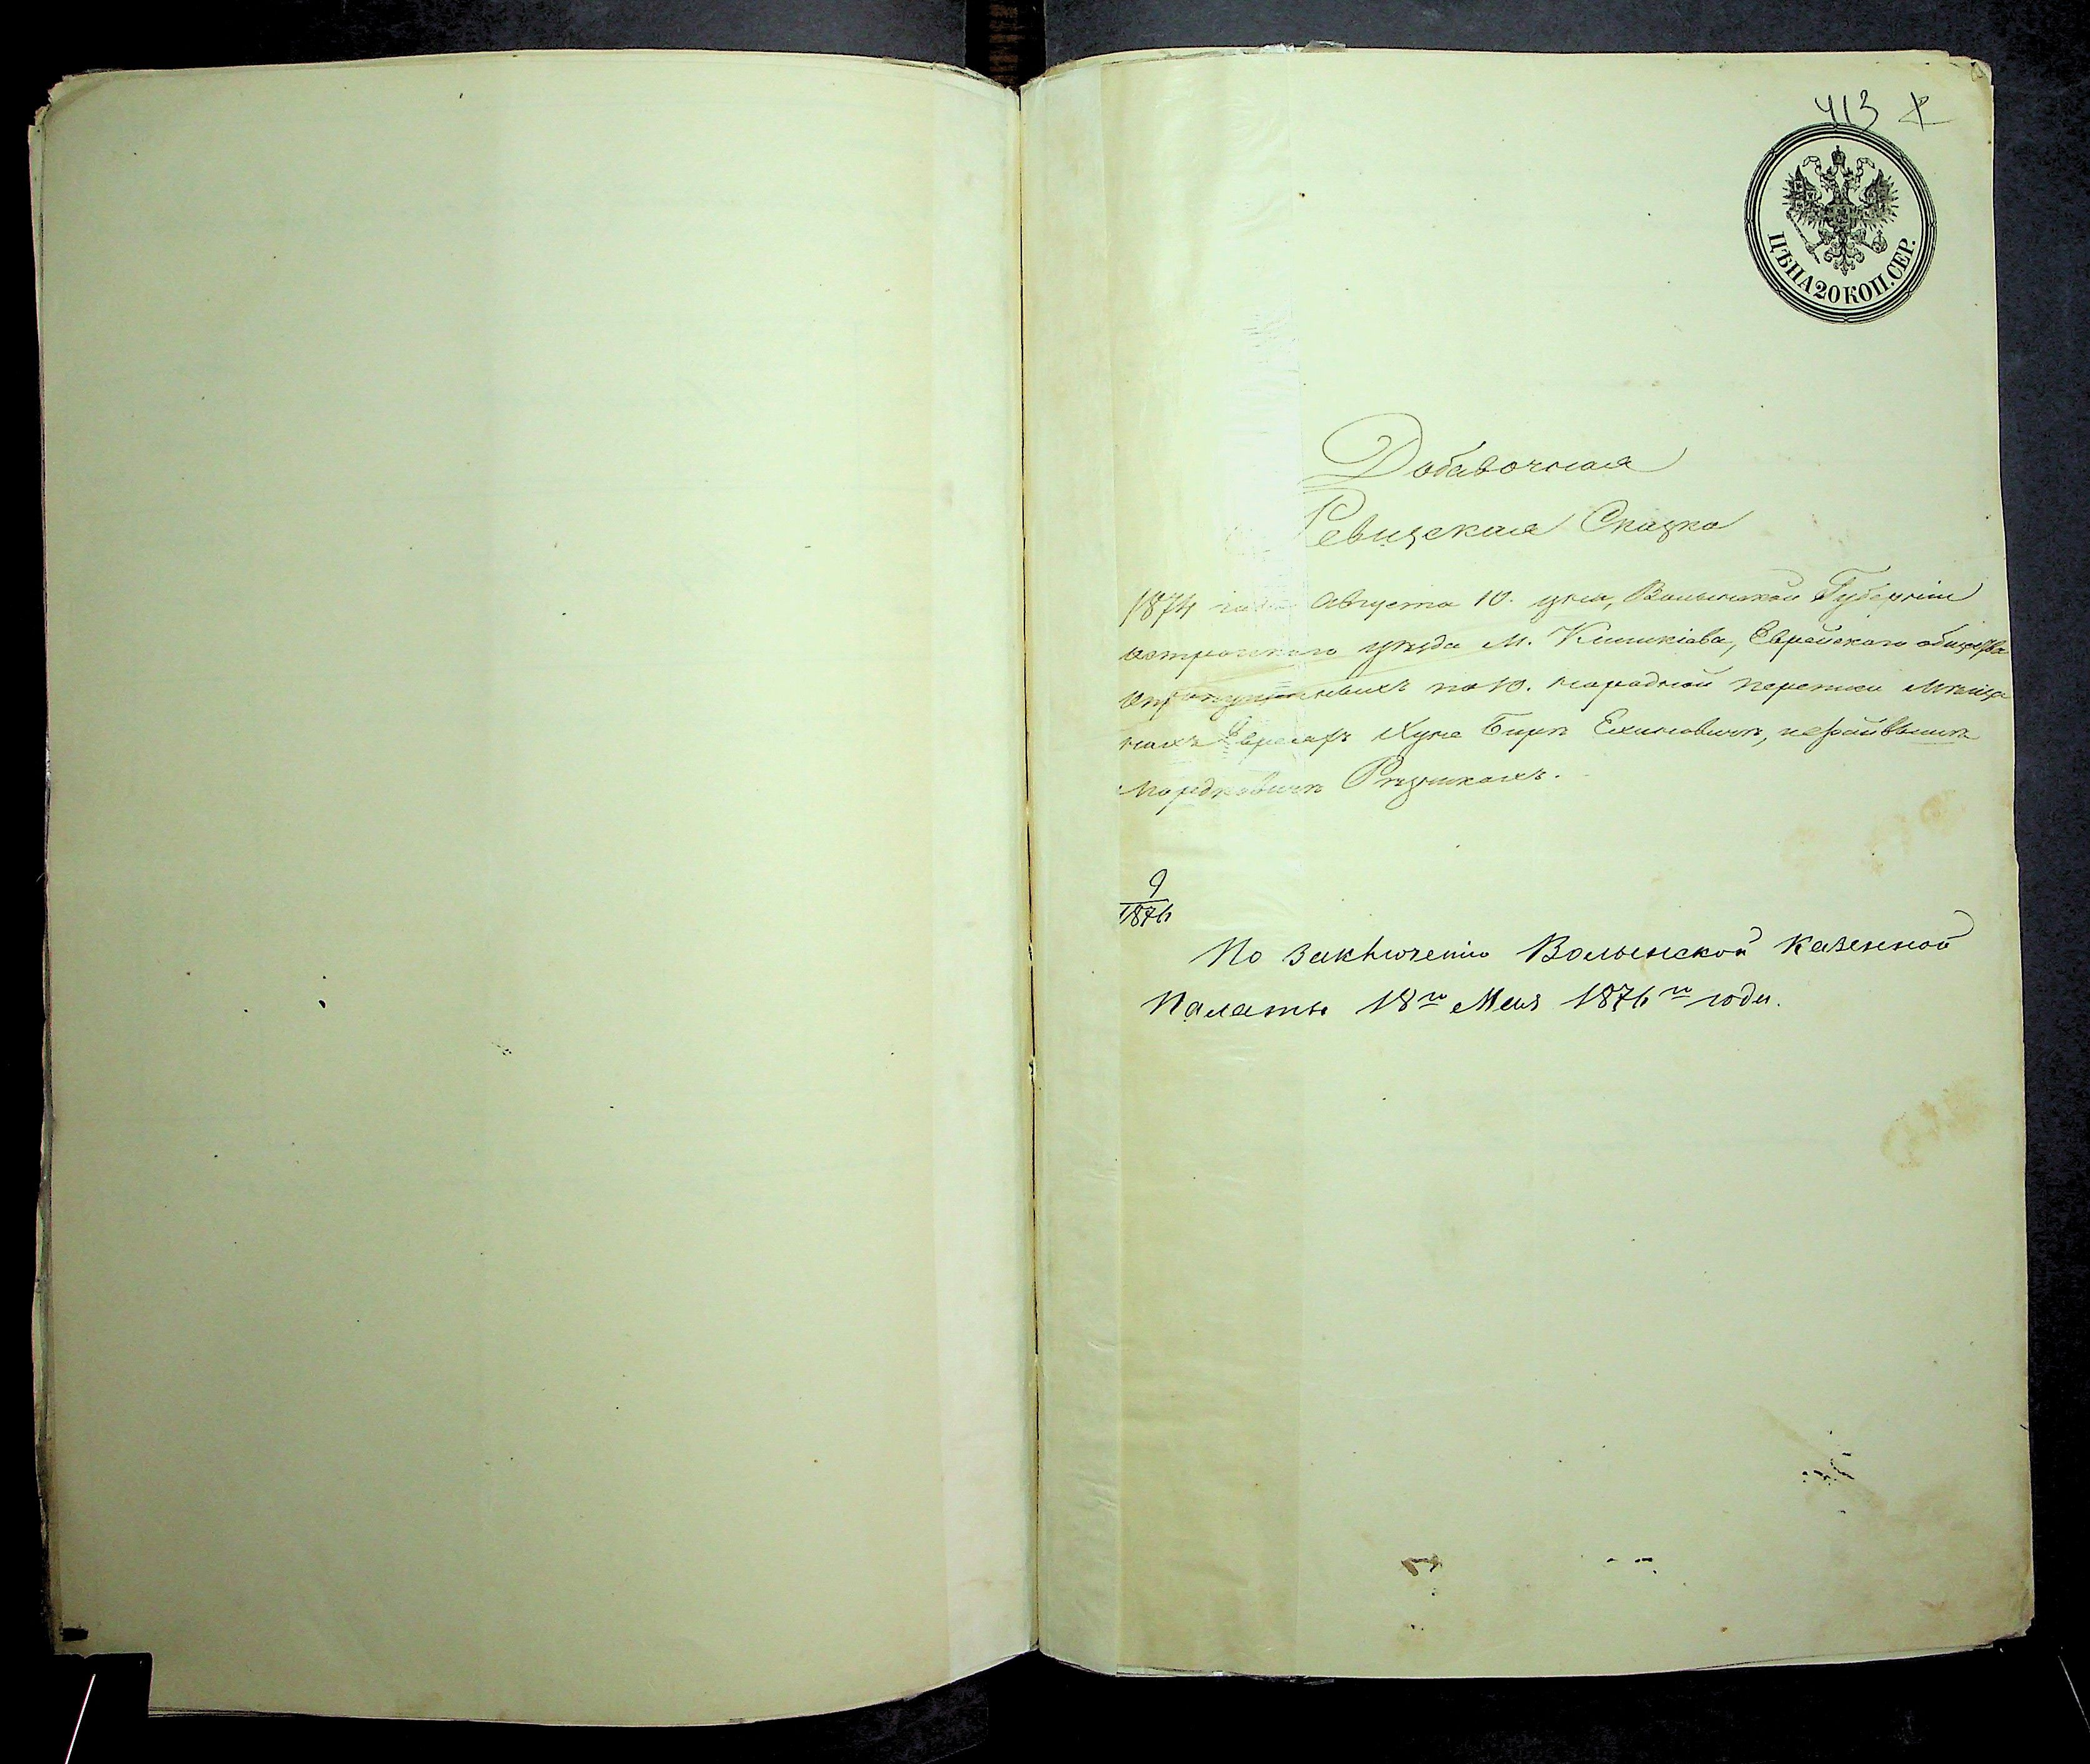 413
ЦѢНА 20 КОП. СЕР.
Добавочная
Ревизская Сказка
1874 года Августа 10. дня, Волынской Губерніи
острогскаго уѣзда М. Кишикіова, Еврейскаго общества
о пропущенныхъ по 10. народной переписи мѣща
нахъ Евреяхъ Хуне Бирѣ Ехилевичѣ,
Мордковичѣ Рѣзникахъ.
9
1876
По заключенію Волынской Казенной
Палаты 18го Мая 1876го года.